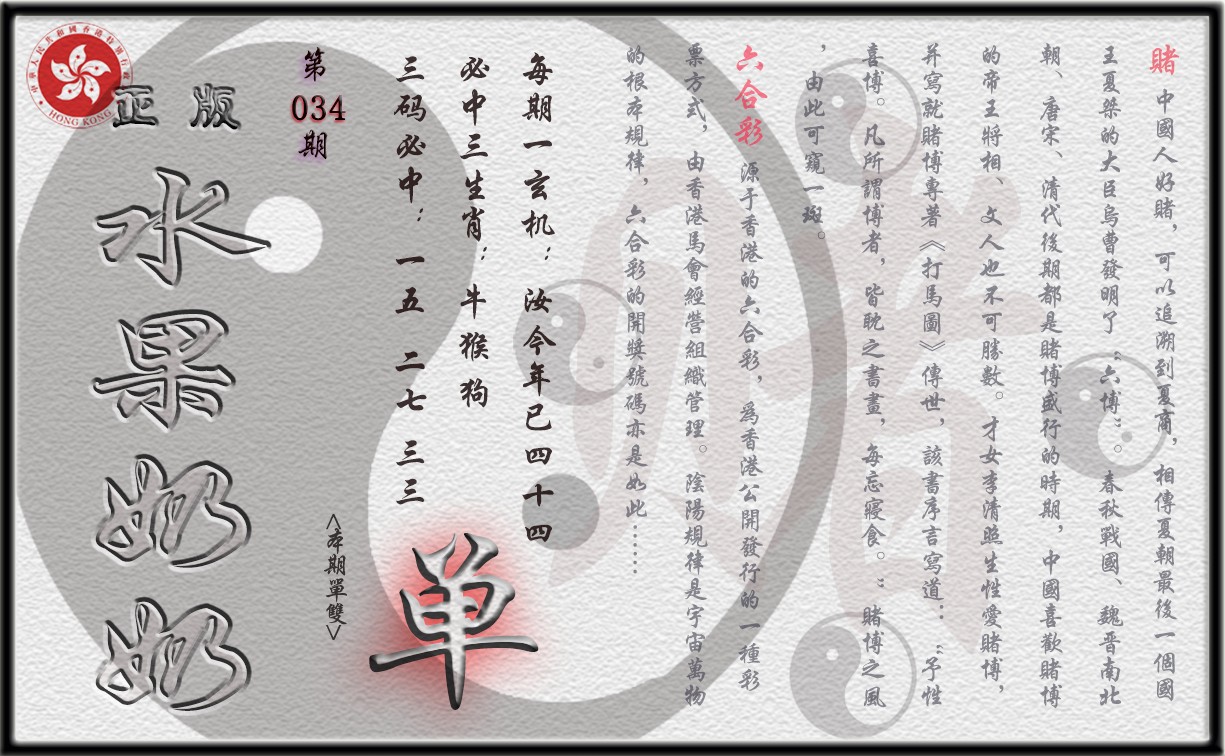 賭 中國人好賭，可以追溯到夏商，相傳夏朝最後一個國
王夏桀的大臣烏曹發明了“六博”。春秋戰國、魏晋南北
朝、唐宋、清代後期都是賭博盛行的時期，中國喜歡賭博
的帝王將相、文人也不可勝數。才女李清照生性愛賭博，
并寫就賭博專著《打馬圖》傳世，該書序言寫道：“予性
喜博。凡所謂博者，皆耽之書畫，每忘寢食。”賭博之風
，由此可窺一斑。
六合彩 源于香港的六合彩，爲香港公開發行的一種彩
票方式，由香港馬會經營組織管理。陰陽規律是宇宙萬物
的根本規律，六合彩的開獎號碼亦是如此……
每期一玄机：汝今年已四十四
必中三生肖：牛猴狗
三码必中：一五 二七 三三
单
<本期單雙>
第
034
期
正版
水果奶奶
中華人民共和國香港特別行政區
HONG KONG